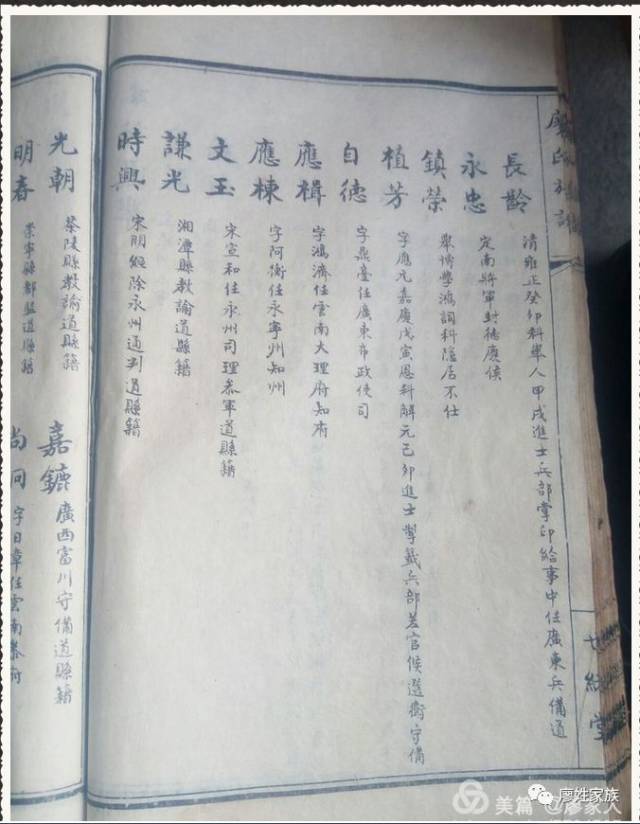 廖氏族譜
長齡 清雍正癸卯科舉人甲戌進士兵部掌印給事中任廣東兵備道
永忠 定南將軍封德慶侯
鎮榮 舉博學鴻詞科隱居不仕
植芳 字應元嘉慶戊寅恩科解元己卯進士掣籤兵部差官候選衛守備
自德 字鼎臺任廣東布政使司
應楫 字鴻濟任雲南大理府知府
應棟 字阿衡任永寧州知州
文玉 宋宣和任永州司理叅軍道縣籍
謙光 湘潭縣教諭道縣籍
時興 宋明經除永州通判道縣籍
光朝 茶陵縣教諭道縣籍
嘉鑣 廣西富川守備道縣籍
明春 崇寧鎮都監道縣籍
尚同 字日章任雲南
堂
廖姓家族
美篇 @廖家人